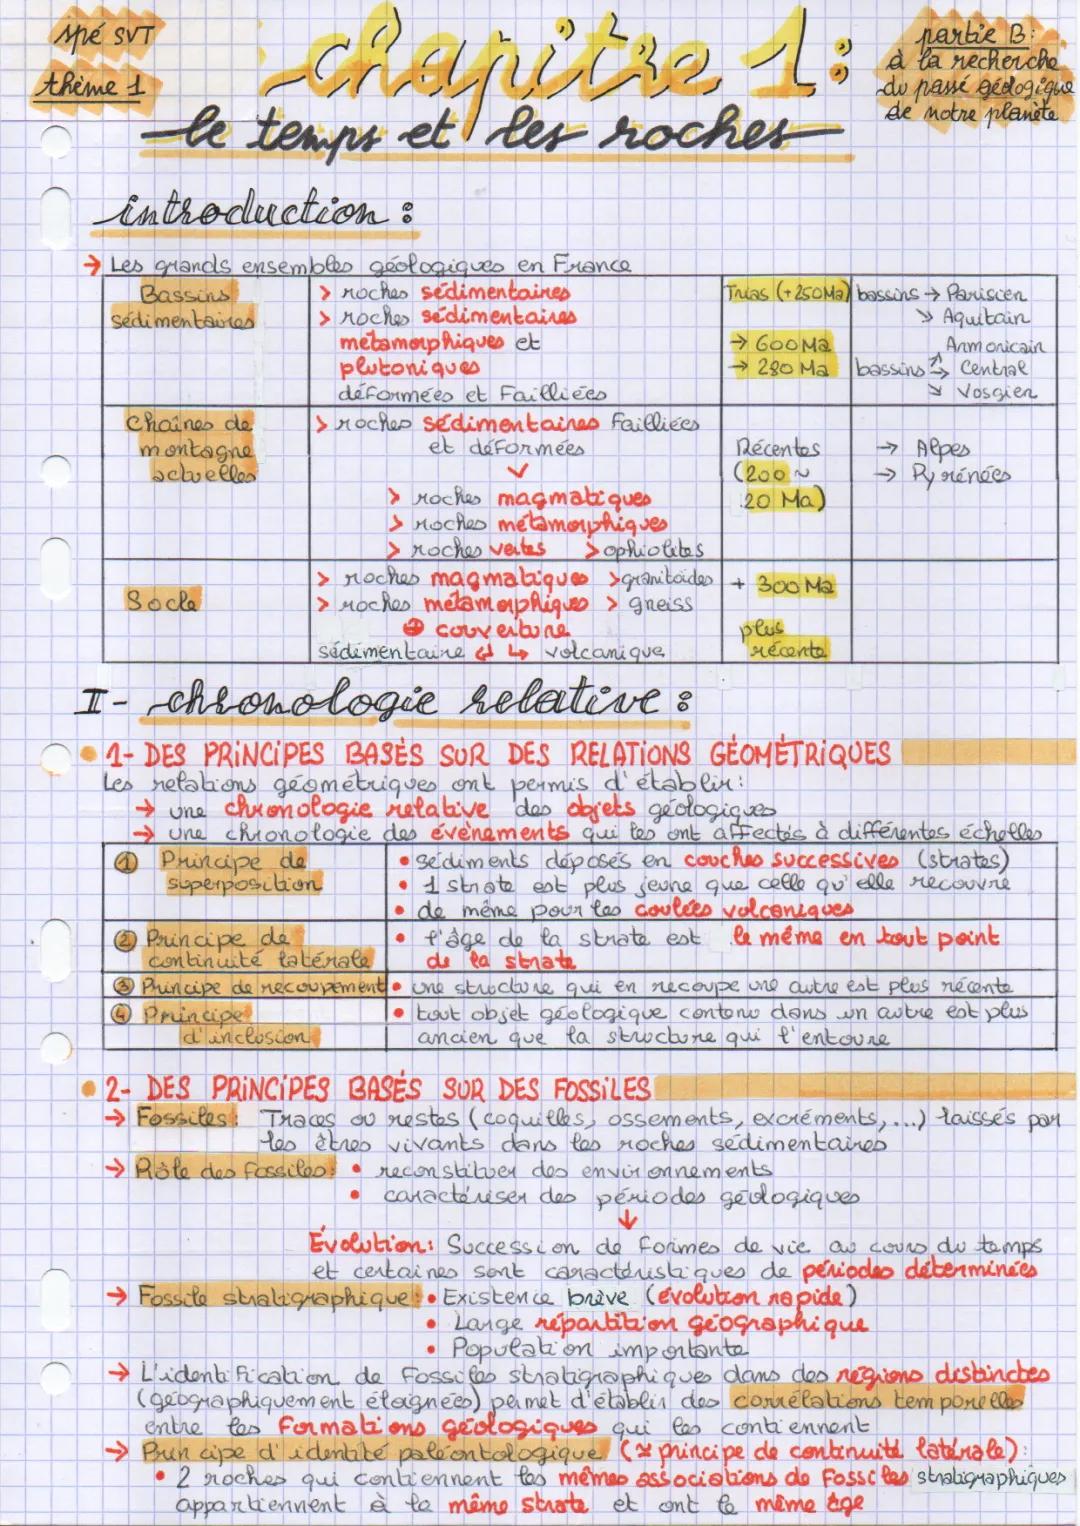 spé SVT
thème 1
chapitre 1 :
le temps et les roches
partie B :
à la recherche
du passé géologique
de notre planète
introduction :
→ Les grands ensembles géologiques en France
Bassins
sédimentaires
> roches sédimentaires
> roches sédimentaires
métamorphiques et
plutoniques
déformées et Failliées
Trias (+250Ma)
→ 600Ma
→ 280 Ma
bassins → Parisien
↘ Aquitain
Armoricain
bassins → Central
↘ Vosgien
Chaînes de
montagne
actuelles
> roches sédimentaires Failliées
et déformées
> roches magmatiques
> roches métamorphiques
> roches vertes > ophiolites
Récentes
(200 ~
20 Ma)
→ Alpes
→ Pyrénées
Socle
> roches magmatiques > granitoïdes
> roches métamorphiques > gneiss
⊕ couverture
sédimentaire ↲ ↳ volcanique
+ 300Ma
plus
récente
I - chronologie relative :
• 1- DES PRINCIPES BASÉS SUR DES RELATIONS GÉOMÉTRIQUES
Les relations géométriques ont permis d'établir :
→ une chronologie relative des objets géologiques
→ une chronologie des évènements qui les ont affectés à différentes échelles
① Principe de
superposition
• sédiments déposés en couches successives (strates)
• 1 strate est plus jeune que celle qu'elle recouvre
• de même pour les coulées volcaniques
② Principe de
continuité latérale
• l'âge de la strate est le même en tout point
de la strate
③ Principe de recoupement
• une structure qui en recoupe une autre est plus récente
④ Principe
d'inclusion
• tout objet géologique contenu dans un autre est plus
ancien que la structure qui l'entoure
• 2- DES PRINCIPES BASÉS SUR DES FOSSILES
→ Fossiles : Traces ou restes (coquilles, ossements, excréments, ...) laissés par
les êtres vivants dans les roches sédimentaires
→ Rôle des fossiles : • reconstituer des environnements
• caractériser des périodes géologiques
↓
Évolution : Succession de formes de vie au cours du temps
et certaines sont caractéristiques de périodes déterminées
→ Fossile stratigraphique : • Existence brève (évolution rapide)
• Large répartition géographique
• Population importante
→ L'identification de Fossiles stratigraphiques dans des régions distinctes
(géographiquement éloignées) permet d'établir des corrélations temporelles
entre les formations géologiques qui les contiennent
→ Principe d'identité paléontologique (≠ principe de continuité latérale) :
• 2 roches qui contiennent les mêmes associations de Fossiles stratigraphiques
appartiennent à la même strate et ont le même âge